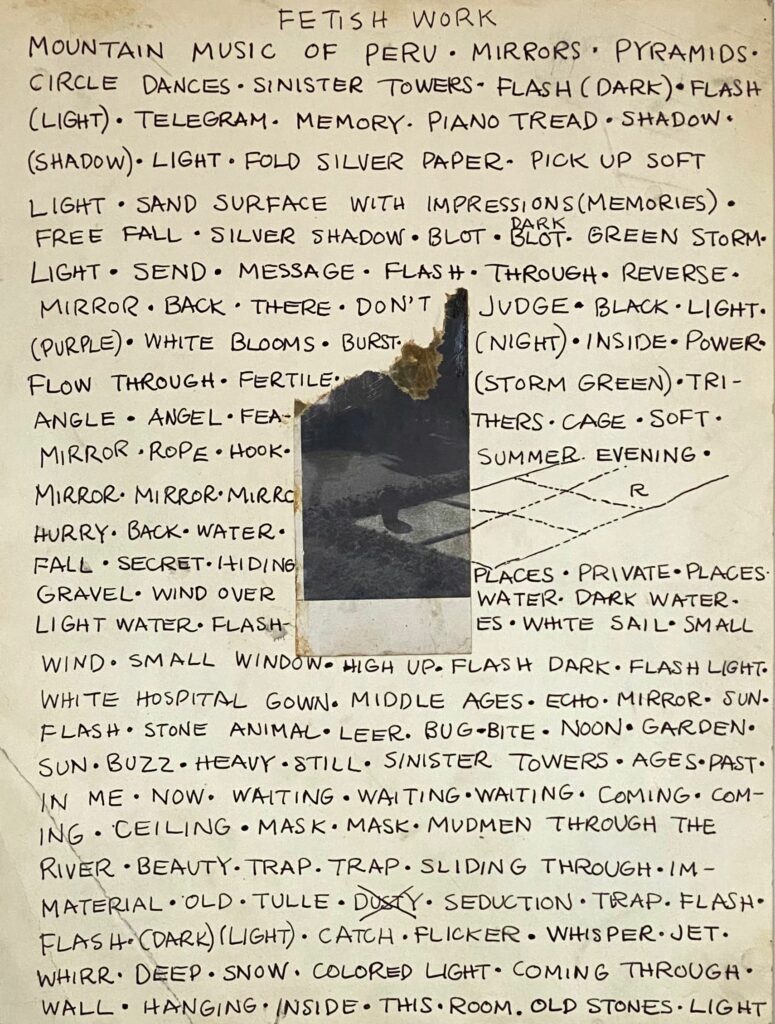 FETISH WORK
MOUNTAIN MUSIC OF PERU · MIRRORS · PYRAMIDS ·
CIRCLE DANCES · SINISTER TOWERS · FLASH (DARK) · FLASH
(LIGHT) · TELEGRAM · MEMORY · PIANO TREAD · SHADOW ·
(SHADOW) · LIGHT · FOLD SILVER PAPER · PICK UP SOFT
LIGHT · SAND SURFACE WITH IMPRESSIONS (MEMORIES) ·
FREE FALL · SILVER SHADOW · BLOT · DARK BLOT · GREEN STORM ·
LIGHT · SEND · MESSAGE · FLASH · THROUGH · REVERSE ·
MIRROR · BACK · THERE · DON'T JUDGE · BLACK · LIGHT ·
(PURPLE) · WHITE BLOOMS · BURST · (NIGHT) · INSIDE · POWER ·
FLOW THROUGH · FERTILE · (STORM GREEN) · TRI-
ANGLE · ANGEL · FEA- THERS · CAGE · SOFT ·
MIRROR · ROPE · HOOK · SUMMER EVENING ·
R
MIRROR · MIRROR · MIRRO
HURRY · BACK · WATER ·
FALL · SECRET · HIDING PLACES · PRIVATE · PLACES ·
GRAVEL · WIND OVER WATER · DARK WATER ·
LIGHT WATER · FLASH- ES · WHITE SAIL · SMALL
WIND · SMALL WINDOW · HIGH UP · FLASH DARK · FLASH LIGHT ·
WHITE HOSPITAL GOWN · MIDDLE AGES · ECHO · MIRROR · SUN ·
FLASH · STONE ANIMAL · LEER · BUG-BITE · NOON · GARDEN ·
SUN · BUZZ · HEAVY · STILL · SINISTER TOWERS · AGES · PAST ·
IN ME · NOW · WAITING · WAITING · WAITING · COMING · COM-
ING · CEILING · MASK · MASK · MUDMEN THROUGH THE
RIVER · BEAUTY · TRAP · TRAP · SLIDING THROUGH · IM-
MATERIAL · OLD · TULLE · DUSTY · SEDUCTION · TRAP · FLASH ·
FLASH · (DARK) (LIGHT) · CATCH · FLICKER · WHISPER · JET ·
WHIRR · DEEP · SNOW · COLORED LIGHT · COMING THROUGH ·
WALL · HANGING · INSIDE · THIS · ROOM · OLD STONES · LIGHT